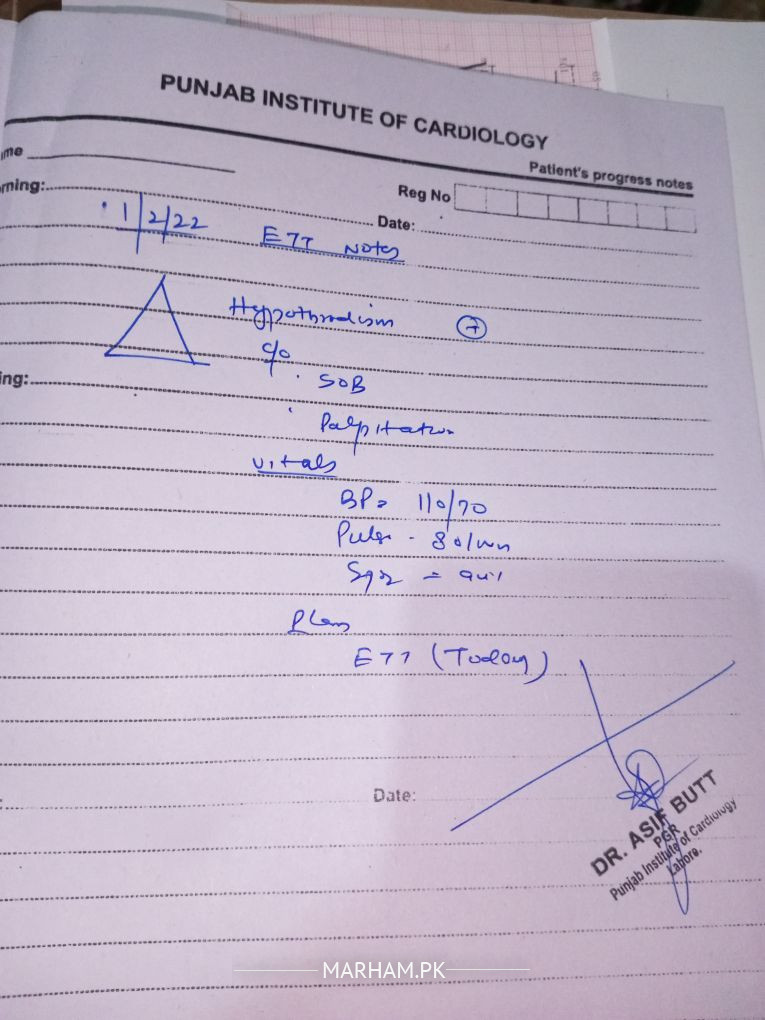 PUNJAB INSTITUTE OF CARDIOLOGY
Patient's progress notes
me
Reg No
rning:
Date:
1/2/22
ETT Notes
Hypothrodism +
c/o
ing:
SOB
Palpitation
Vitals
BP = 110/70
Pulse - 80/min
Plan
ETT (Today)
Date:
DR. ASIF BUTT
PGR
Punjab Institute of Cardiology
Lahore.
MARHAM.PK